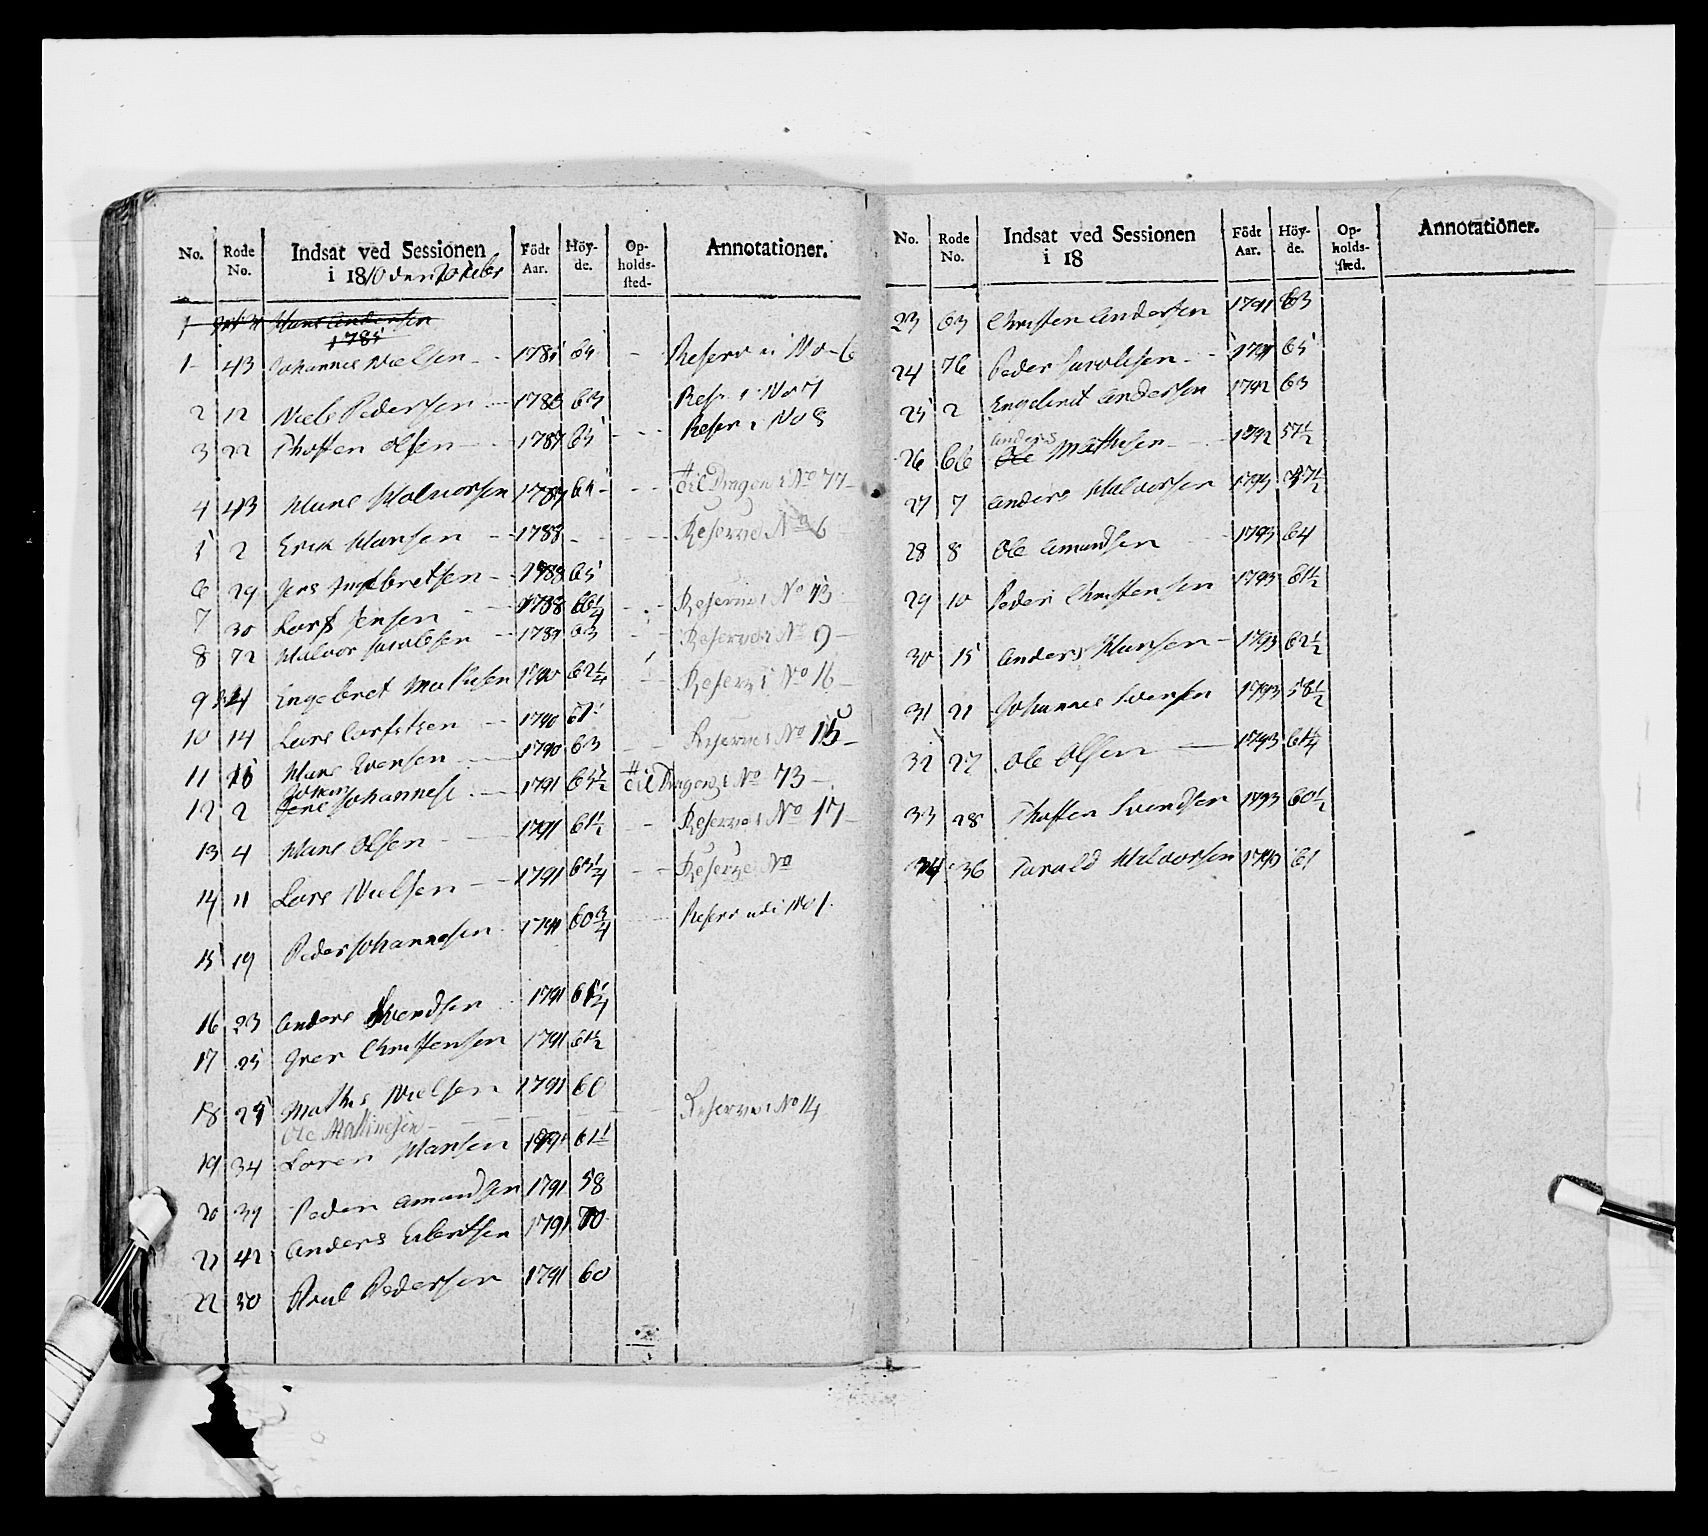 No. Rode No. Indsat ved Sessionen i 1810 den Födt Aar. Höy-de. Op-holds-sted. Annotationer.
1 Hans Andersen
1785
1 43 Johannes Nielsen 1785 65 Reserv i No 6
2 12 Niels Pedersen 1786 63 Res. i No 7
3 22 Thosten Olsen 1787 65 Reserv i No 8
4 43 Hans Halvorsen 1787 64 til Dragon: No 77
5 2 Erik Hansen 1788 Reserve No 6
6 29 Jens Ingebretsen 1788 65
7 30 Lars Jensen 1788 66 1/4 Reserve No 13
8 72 Halvor Jacobsen 1789 63 Reserve No 9
9 Engebret Mathisen 1790 62 1/4 Reserv No 16
10 14 Lars 1790 61
11 15 Hans Evensen 1790 63 Reserve No 15
12 2 Johan Johannes: 1791 65 1/2 til Dragon: No 73
13 4 Hans Olsen 1791 61 1/2 Reserve No 17
14 11 Lars Nielsen 1791 63 1/4 Reserve No
15 19 Peder Johannesen 1791 60 3/4 Reserv No 1.
16 23 Anders Svendsen 1791 61 1/4
17 25 Iver Christensen 1791 61 1/2
18 29 Mathis Nielsen 1791 60
Ole Mathisesen Reserve No 14
19 34 Loren Hansen 1791 61
20 39 Peder Amundsen 1791 58
21 42 Anders 1791 70
22 50 Poul Pedersen 1791 60
No. Rode No. Indsat ved Sessionen i 18 Födt Aar. Höy-de. Op-holds-sted. Annotationer.
23 63 Christen Andersen 1791 63
24 76 Peder Jacobsen 1791 65
25 2 Engebret Andersen 1792 63
Anders
26 66 Ole Mathisen 1792 57 1/2
27 7 Anders Halvorsen 1793 57 1/2
28 8 Ole Amundsen 1793 64
29 10 Peder Christensen 1793 61 1/2
30 15 Anders Hansen 1793 62 1/2
31 21 Johannes Svensen 1793 58 1/2
32 27 Ole Olsen 1793 61 1/4
33 28 Thosten Svendsen 1793 60 1/2
34 36 Tarald Halvorsen 1793 61